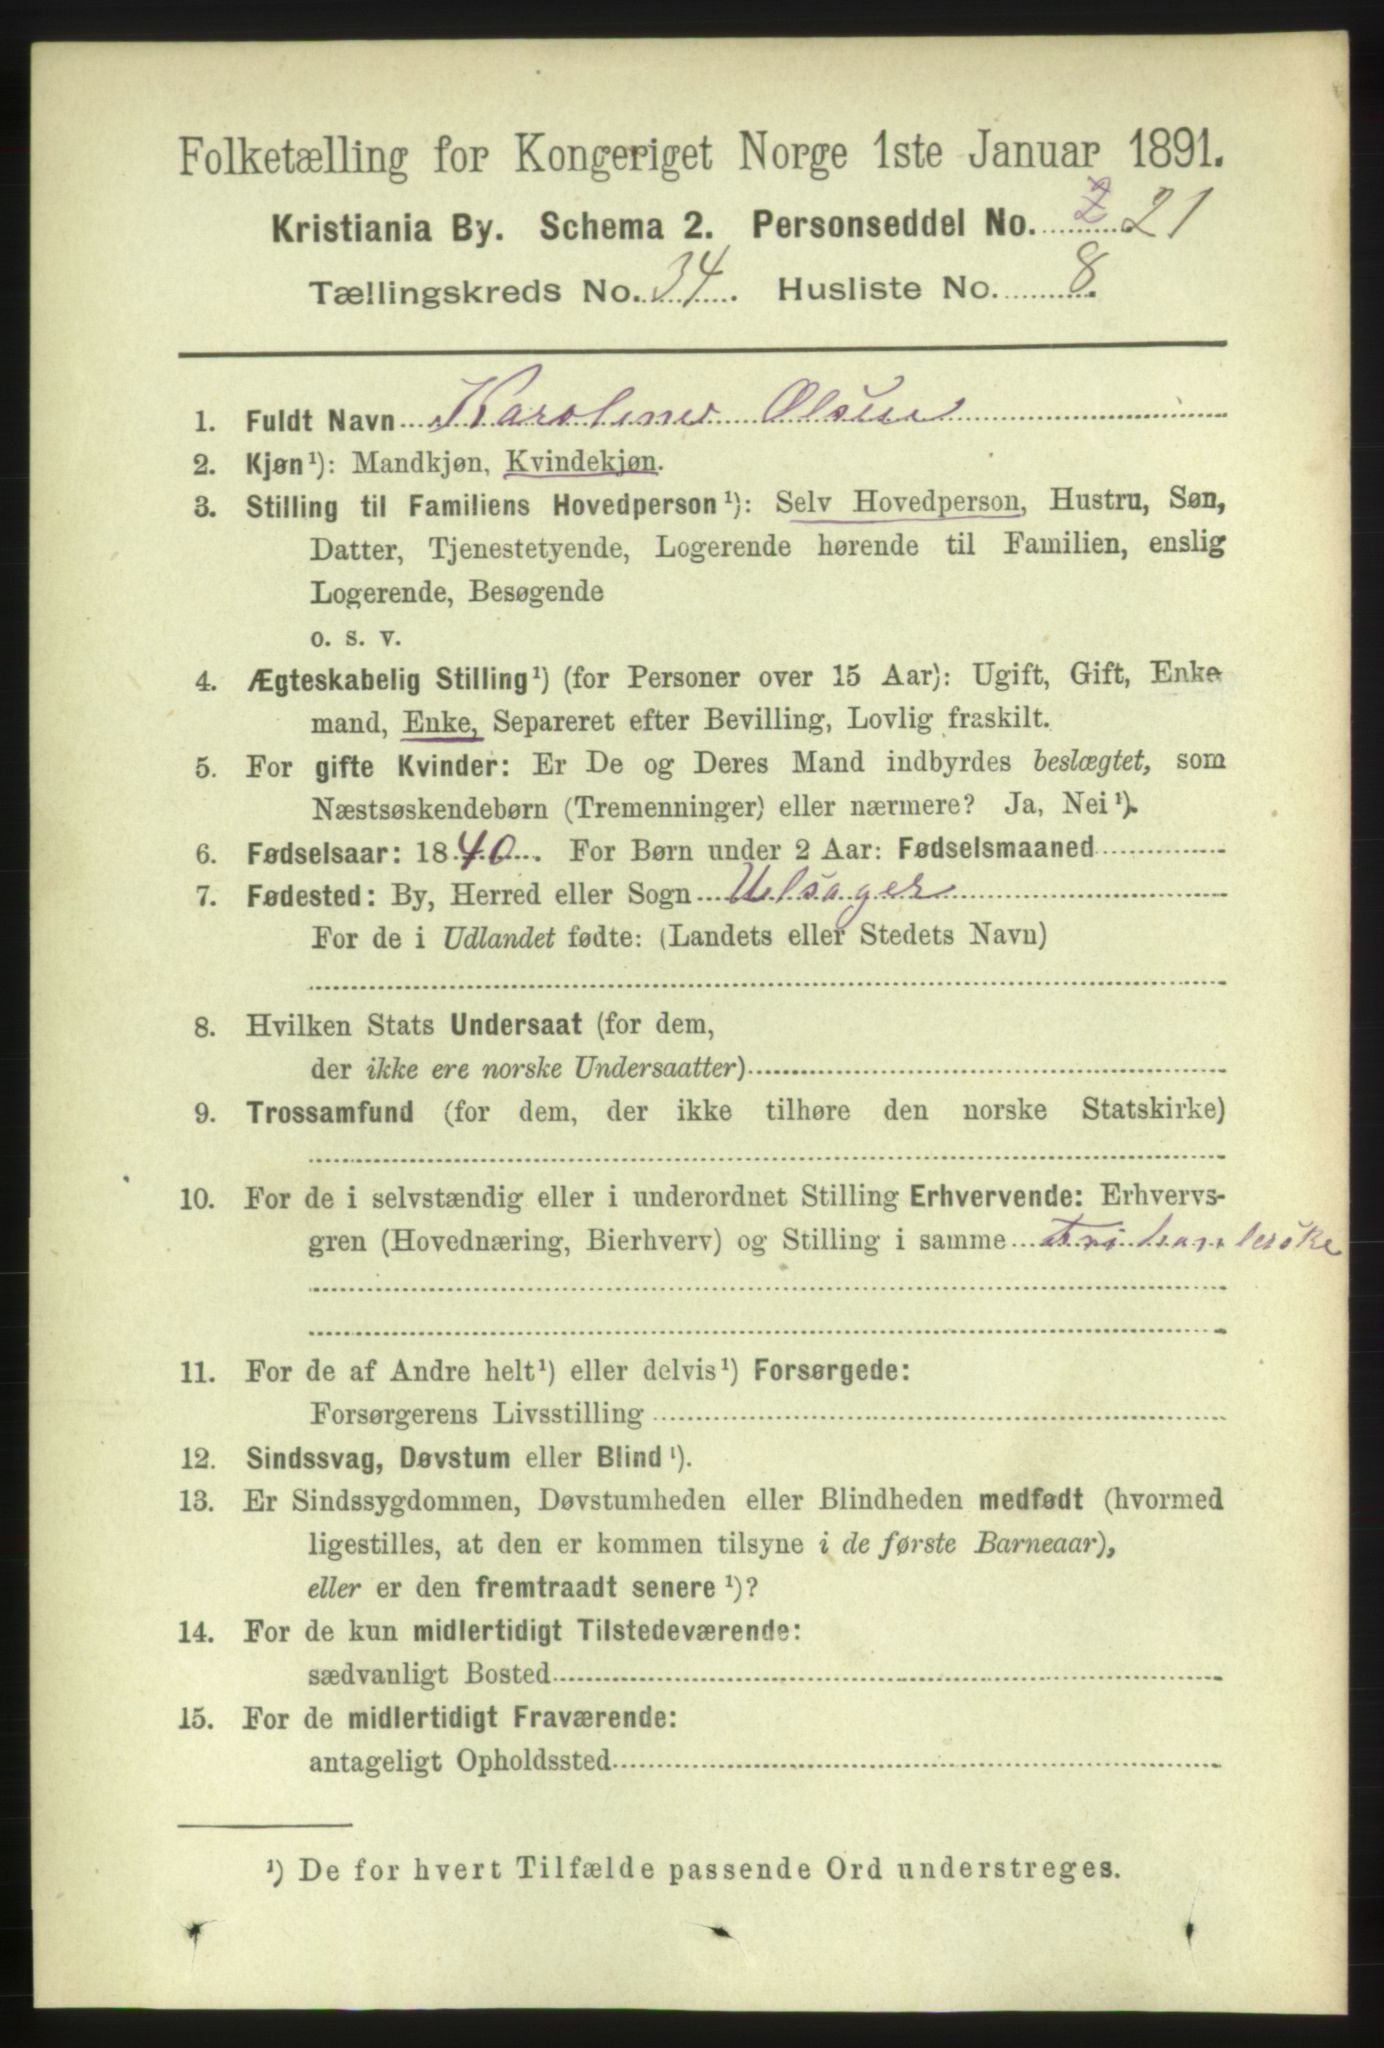 Folketælling for Kongeriget Norge 1ste Januar 1891.
Kristiania By. Schema 2. Personseddel No. 21
Tællingskreds No. 34. Husliste No. 8.
1. Fuldt Navn Karoline Olsen
2. Kjøn¹): Mandkjøn, Kvindekjøn.
3. Stilling til Familiens Hovedperson¹): Selv Hovedperson, Hustru, Søn,
Datter, Tjenestetyende, Logerende hørende til Familien, enslig
Logerende, Besøgende
o. s. v.
4. Ægteskabelig Stilling¹) (for Personer over 15 Aar): Ugift, Gift, Enke
mand, Enke, Separeret efter Bevilling, Lovlig fraskilt.
5. For gifte Kvinder: Er De og Deres Mand indbyrdes beslægtet, som
Næstsøskendebørn (Tremenninger) eller nærmere? Ja, Nei¹).
6. Fødselsaar: 1840. For Børn under 2 Aar: Fødselsmaaned
7. Fødested: By, Herred eller Sogn Ulsager
For de i Udlandet fødte: (Landets eller Stedets Navn)
8. Hvilken Stats Undersaat (for dem,
der ikke ere norske Undersaatter)
9. Trossamfund (for dem, der ikke tilhøre den norske Statskirke)
10. For de i selvstændig eller i underordnet Stilling Erhvervende: Erhvervs-
gren (Hovednæring, Bierhverv) og Stilling i samme
11. For de af Andre helt¹) eller delvis¹) Forsørgede:
Forsørgerens Livsstilling
12. Sindssvag, Døvstum eller Blind¹).
13. Er Sindssygdommen, Døvstumheden eller Blindheden medfødt (hvormed
ligestilles, at den er kommen tilsyne i de første Barneaar),
eller er den fremtraadt senere¹)?
14. For de kun midlertidigt Tilstedeværende:
sædvanligt Bosted
15. For de midlertidigt Fraværende:
antageligt Opholdssted
¹) De for hvert Tilfælde passende Ord understreges.